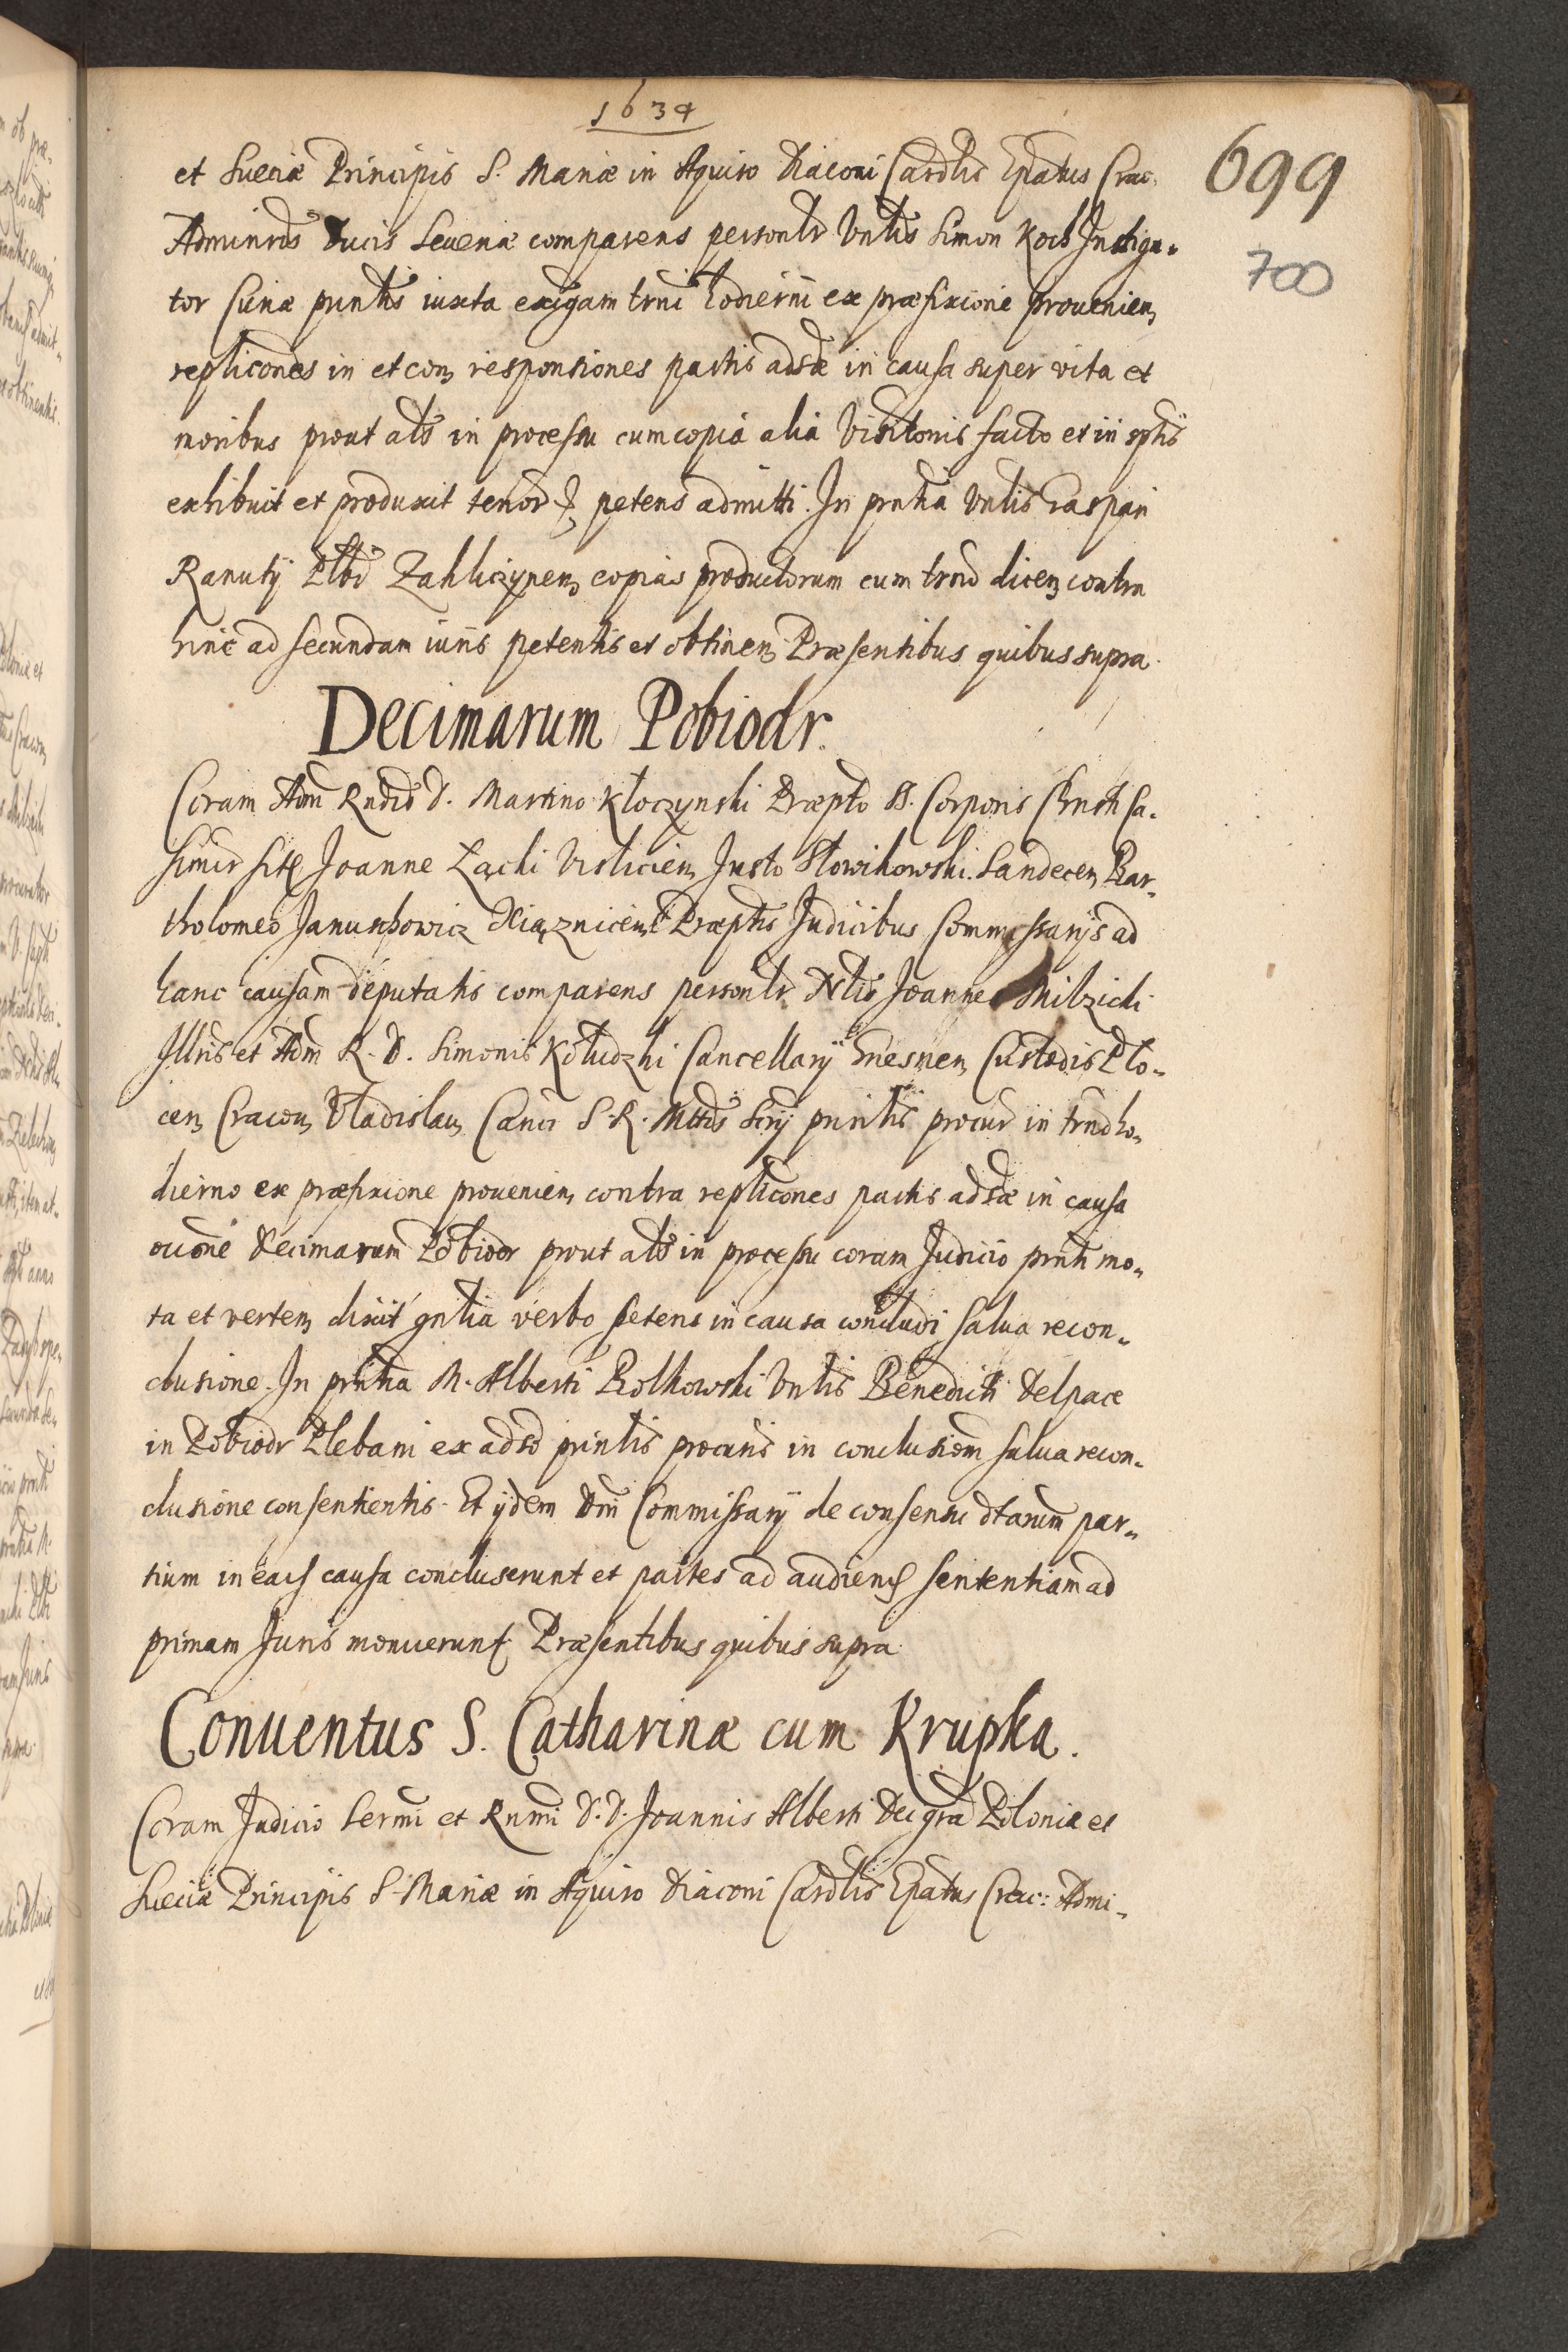 1634
699
700
et Sueciæ Principis S. Mariæ in Aquiro Diaconi Cardlis Epatus Crac.
Adminris Ducis Seueriæ comparens personlr Vnlis Simon Koch Instiga-
tor Curiæ pnntis iuxta exigam trni hodierni ex præfixione prouenien,
replicones in et con, responsiones partis adsæ in causa super vita et
moribus prout als in processu cum copia alia Visitonis facto et in sptis
exhibuit et produxit tenor petens admitti. In pnntia Vnlis Gaspari
Ranutij Plbi Zakliczynen, copias productorum cum trno dicen, contra
hinc ad secundam iuris petentis et obtinen, Præsentibus quibus supra.
Decimarum Pobiodr.
Coram Adm Rndis D. Martino Kloczynski Præpto SS. Corporis Christi Ca-
simir Joanne Lącki Visliciem, Justo Słowikowski Sandecen, Bar-
tholomeo Januszowicz Xiąznicen, Præptis Judicibus Commissarijs ad
hanc causam deputatis comparens personlr Nlis Joannes Milzicki
Illris et Adm R. D. Simonis Kołudzki Cancellarij Gnesnen, Custodis Plo-
cen, Cracou, Vladislau, Canci S. R. Mttis Scrij pnntis procur in trno ho-
dierno ex præfixione prouenien, contra replicones partis adsæ in causa
ouone Decimarum Pobiodr prout als in processu coram Judicio pnnti mo-
ta et verten, dixit gnlia verbo petens in causa concludi salua recon-
clusione. In pnntia M. Alberti Rolkowski Vnlis Benedicti Delpace
in Pobiodr Plebani ex adso pnntis procuris in conclusionem salua recon-
clusione consentientis. Et ijdem Dni Commissarij de consensu dtarum par-
tium in causa concluserunt et partes ad audiend sententiam ad
primam Juris monuerunt. Præsentibus quibus supra.
Conuentus S. Catharinæ cum Krupka.
Coram Judicio Sermi et Rnmi D. D. Joannis Alberti Dei gra Poloniæ et
Sueciæ Principis S. Mariæ in Aquiro Diaconi Cardlis Epatus Crac: Admi-